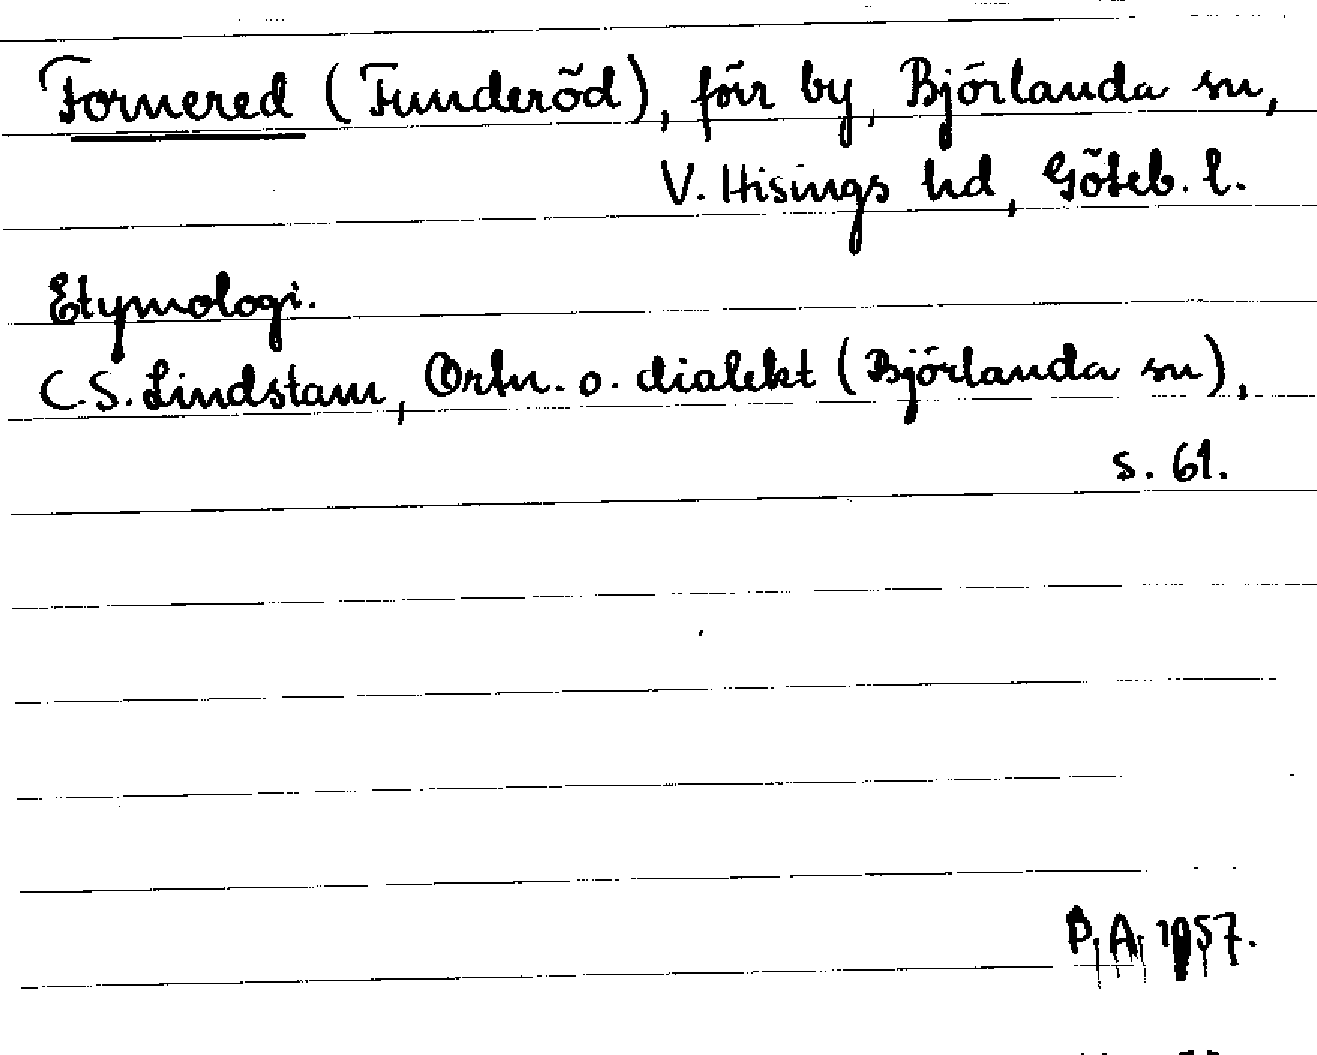 Fornered (Funderöd), förr by, Björlanda sn,
V. Hisings hd, Göteb. l.
Etymologi.
C.S. Lindstam, Ortn. o. dialekt (Björlanda sn),
s. 61.
P.A. 1957.